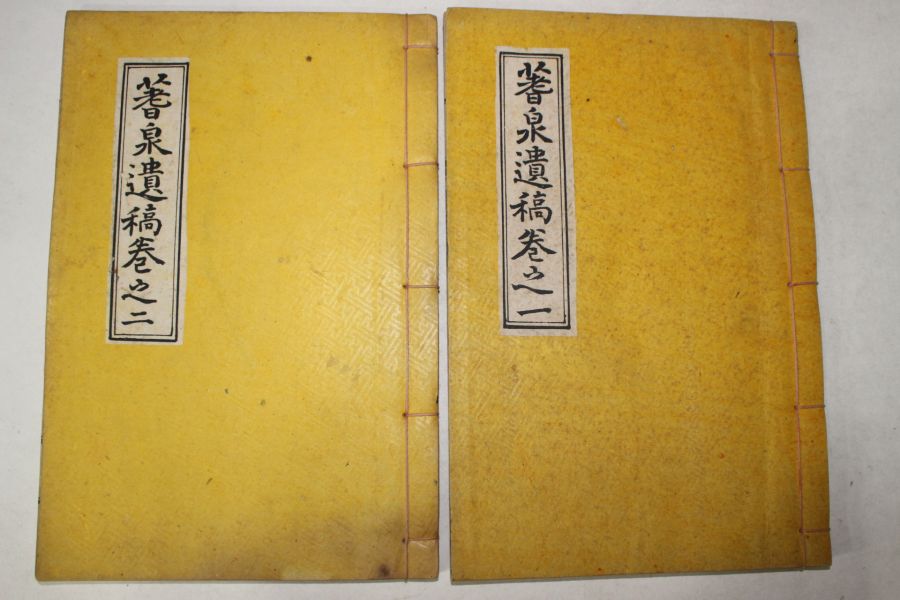 蓍泉遺稿卷之一
蓍泉遺稿卷之二